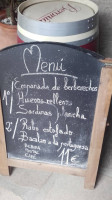 Menú
1º Empanada de berberechos
Huevos rellenos
Sardinas plancha
2º Rabo estofado
Bacalao a la portuguesa
11€